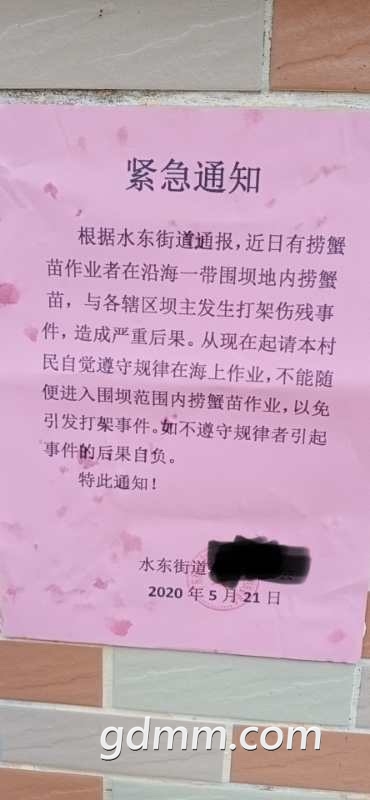 紧急通知
根据水东街道通报，近日有捞蟹
苗作业者在沿海一带围坝地内捞蟹
苗，与各辖区坝主发生打架伤残事
件，造成严重后果。从现在起请本村
民自觉遵守规律在海上作业，不能随
便进入围坝范围内捞蟹苗作业，以免
引发打架事件。如不遵守规律者引起
事件的后果自负。
特此通知！
水东街道
2020 年 5 月 21 日
gdmm.com